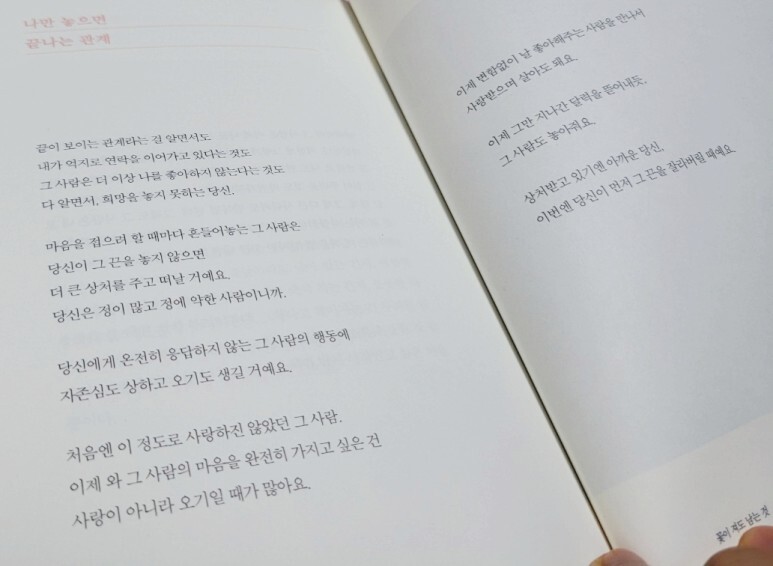 나만 놓으면
끝나는 관계
끝이 보이는 관계라는 걸 알면서도
내가 억지로 연락을 이어가고 있다는 것도
그 사람은 더 이상 나를 좋아하지 않는다는 것도
다 알면서, 희망을 놓지 못하는 당신.
마음을 접으려 할 때마다 흔들어놓는 그 사람은
당신이 그 끈을 놓지 않으면
더 큰 상처를 주고 떠날 거예요.
당신은 정이 많고 정에 약한 사람이니까.
당신에게 온전히 응답하지 않는 그 사람의 행동에
자존심도 상하고 오기도 생길 거예요.
처음엔 이 정도로 사랑하진 않았던 그 사람.
이제 와 그 사람의 마음을 완전히 가지고 싶은 건
사랑이 아니라 오기일 때가 많아요.
이제 변함없이 날 좋아해주는 사람을 만나서
사랑받으며 살아도 돼요.
이제 그만 지나간 달력을 뜯어내듯,
그 사람도 놓아줘요.
상처받고 있기엔 아까운 당신.
이번엔 당신이 먼저 그 끈을 잘라버릴 때예요
꽃이 져도 남는 것